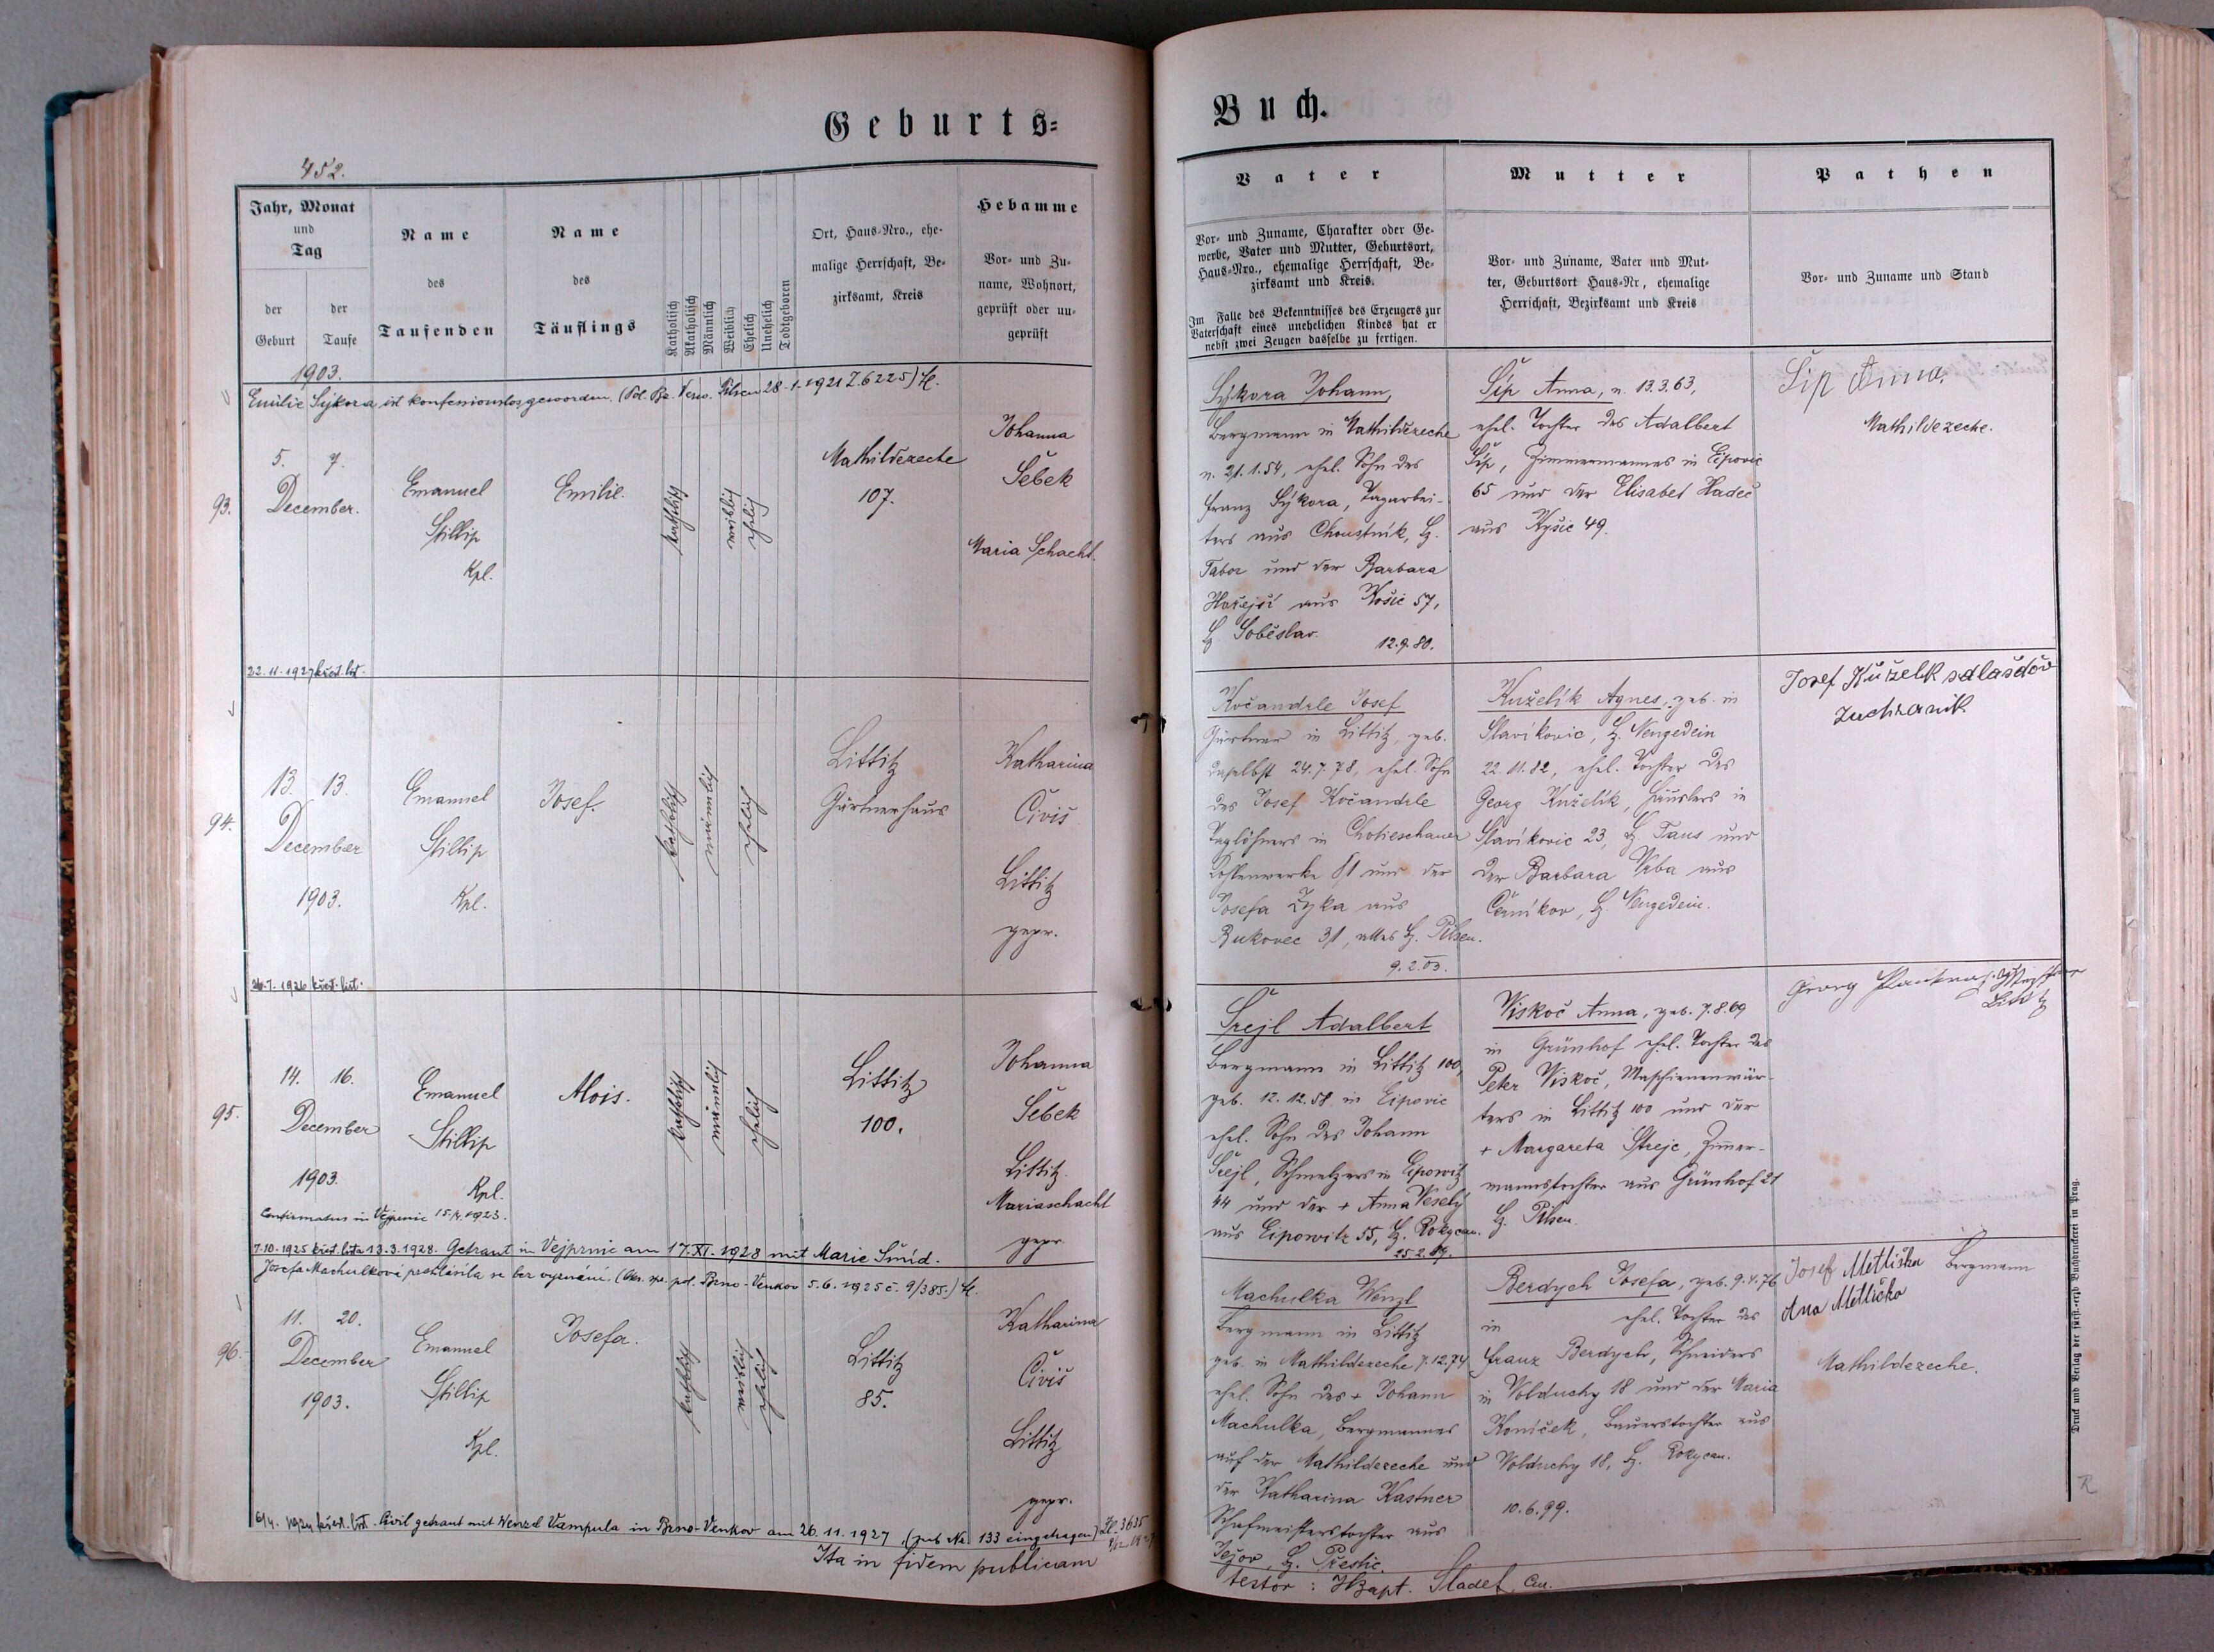 Geburts=
Buch.
452.
Jahr, Monat
und
Tag
der
Geburt
der
Taufe
Name
des
Taufenden
Name
des
Täuflings
Katholisch
Akatholisch
Männlich
Weiblich
Ehelich
Unehelich
Todtgeboren
Ort, Haus-Nro., ehe-
malige Herrschaft, Be-
zirksamt, Kreis
Hebamme
Vor- und Zu-
name, Wohnort,
geprüft oder un-
geprüft
Vater
Vor- und Zuname, Charakter oder Ge-
werbe, Vater und Mutter, Geburtsort,
Haus-Nro., ehemalige Herrschaft, Be-
zirksamt und Kreis.
Im Falle des Bekenntnisses des Erzeugers zur
Vaterschaft eines unehelichen Kindes hat er
nebst zwei Zeugen dasselbe zu fertigen.
Mutter
Vor- und Zuname, Vater und Mut-
ter, Geburtsort Haus-Nr, ehemalige
Herrschaft, Bezirksamt und Kreis
Pathen
Vor- und Zuname und Stand
1903.
Emilie Sýkora ist konfessionslos geworden. (Pol. Bz. Verw. Pilsen 28.1.1921 Z. 6225)
93.
5. 7.
December.
Emanuel
Stillip
Kpl.
Emilie.
katholisch
weiblich
ehelich
Mathildezeche
107.
Johanna
Šebek
Maria Schacht.
Sýkora Johann,
Bergmann in Mathildezeche
n. 21.1.54, ehel. Sohn des
Franz Sýkora, Tagarbei-
ters aus Choustník, B.
Tabor und der Barbara
Hořejší aus Košic 57,
B. Soběslav.
12.9.80.
Šíp Anna, n. 13.3.63,
ehel. Tochter des Adalbert
Šíp, Zimmermannes in Eipovic
65 und der Elisabet Hadač
aus Kyšic 49.
Šip Anna.
Mathildezeche.
22.11.1927 křest. list.
94.
13. 13.
December
1903.
Emanuel
Stillip
Kpl.
Josef.
katholisch
männlich
ehelich
Littitz
Gärtnerhaus
Katharina
Čiviš
Littitz
gepr.
Kočandrle Josef
Gärtner in Littitz, geb.
daselbst 24.7.78, ehel. Sohn
des Josef Kočandrle
Taglöhners in Chotieschauer
Kohlenwerke 81 und der
Josefa Zyka aus
Bukovec 31, alles B. Pilsen.
9.2.03.
Kuželík Agnes, geb. in
Slavíkovic, B. Neugedein
22.11.82, ehel. Tochter des
Georg Kuželík, Häuslers in
Slavíkovic 23, B. Taus und
der Barbara Vrba aus
Černíkov, B. Neugedein.
Josef Kuželík
26.7.1926 křest. list.
95.
14. 16.
December
1903.
Emanuel
Stillip
Kpl.
Alois.
katholisch
männlich
ehelich
Littitz
100.
Johanna
Šebek
Littitz.
Mariaschacht
gepr.
Confirmatus in Vejprnic
Šrejl Adalbert
Bergmann in Littitz 100,
geb. 12.12.58 in Eipovic
ehel. Sohn des Johann
Šrejl, Schmelzers in Eipowitz
44 und der + Anna Veselý
aus Eipowitz 55, B. Rokycan.
25.2.89.
Viskoč Anna, geb. 7.8.69
in Grünhof ehel. Tochter des
Peter Viskoč, Maschinenwär-
ters in Littitz 100 und der
+ Margareta Strejc, Zimmer-
mannstochter aus Grünhof 21
B. Pilsen.
Georg
Littitz
7.10.1925 křest. list a 13.3.1928. Getraut in Vejprnic am 17.XI.1928 mit Marie Šmíd.
Josefa Machulková prohlásila se bez vyznání. (Okr. spr. pol. Brno-Venkov 5.6.1925 č. 9/385.)
96.
11. 20.
December
1903.
Emanuel
Stillip
Kpl.
Josefa.
katholisch
weiblich
ehelich
Littitz
85.
Katharina
Čiviš
Littitz
gepr.
Machulka Wenzl
Bergmann in Littitz
geb. in Mathildezeche 7.12.74
ehel. Sohn des + Johann
Machulka, Bergmannes
auf der Mathildezeche und
der Katharina Kastner
Schafmeisterstochter aus
Ježov, B. Přestic.
Berdych Josefa, geb. 9.4.76
in ehel. Tochter des
Franz Berdych, Schneiders
in Volduchy 18 und der Maria
Koníček, Bauerstochter aus
Volduchy 18, B. Rokycan.
10.6.99.
Josef Mětlička Bergmann
Ana Mětlička
Mathildezeche.
křest. list. Civil getraut mit Wenzel Vampula in Brno-Venkov am 26.11.1927 (sub No 133 eingetragen)
Ita in fidem publicam
testor: JBapt. Sladef, Cur.
Druck und Verlag der fürst.-erzb. Buchdruckerei in Prag.